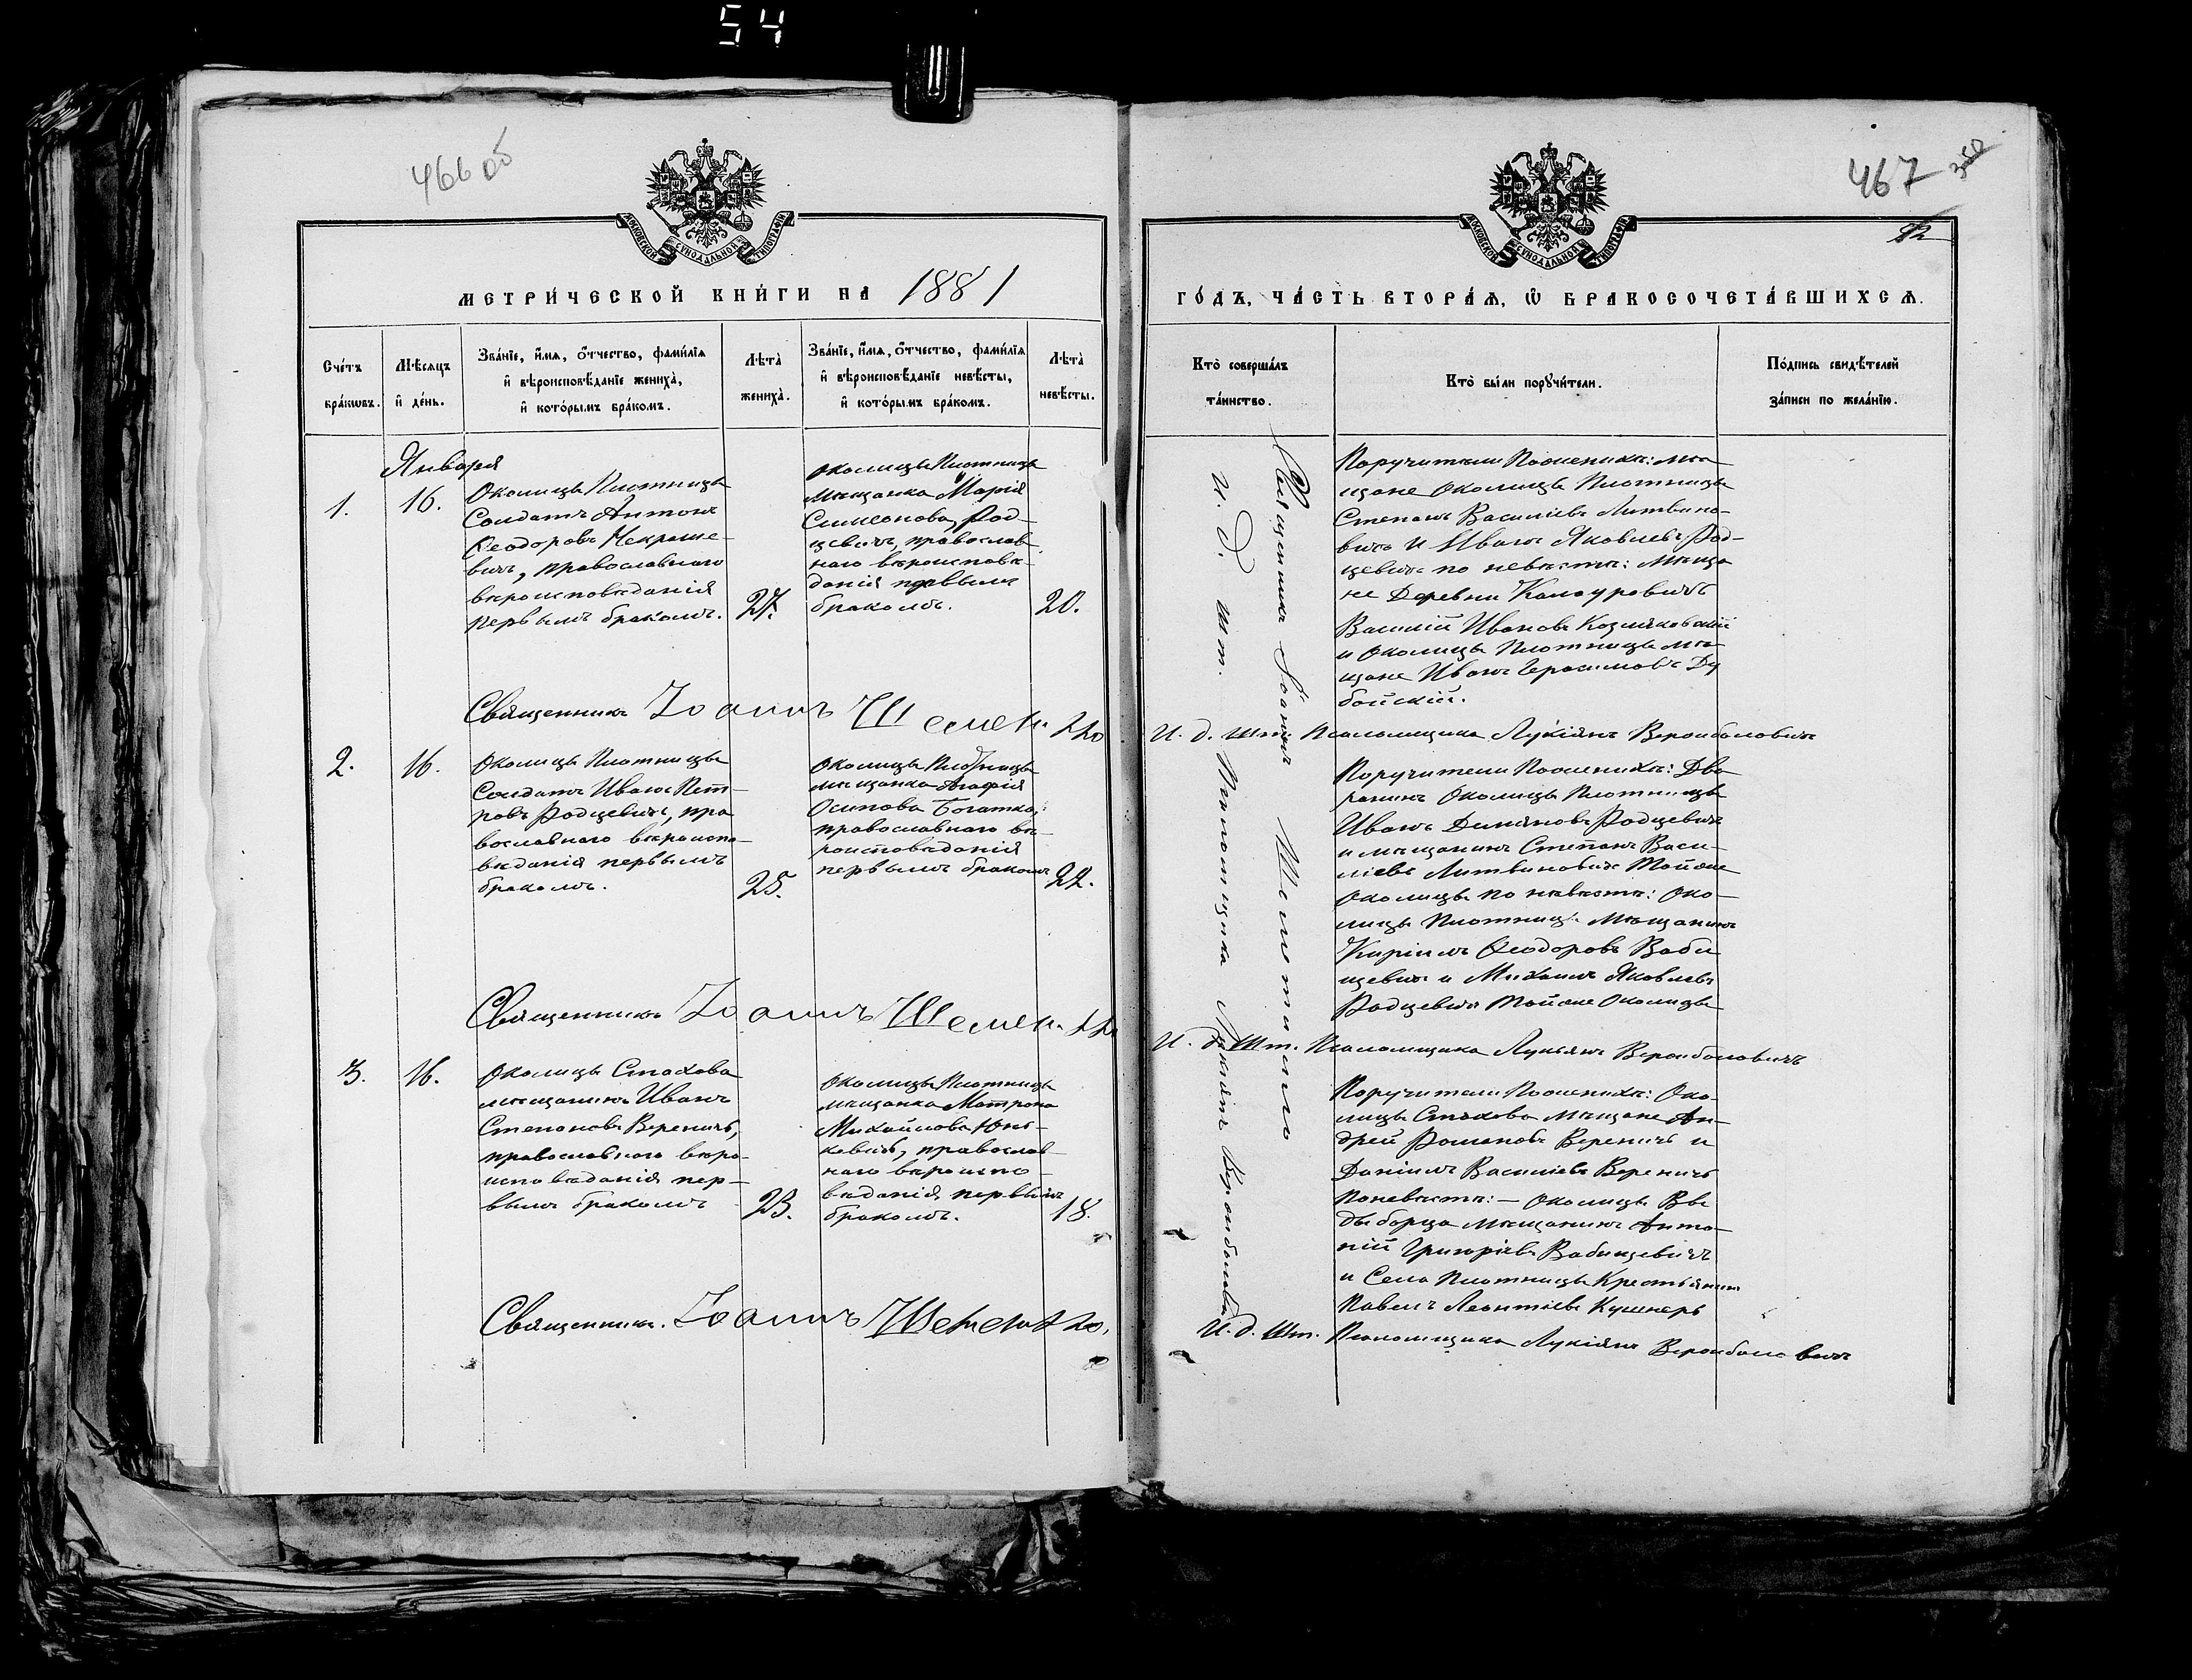 54
466 об
467
МОСКОВСКОЙ СУНОДАЛЬНОЙ ТИПОГРАФІИ
МОСКОВСКОЙ СУНОДАЛЬНОЙ ТИПОГРАФІИ
МЕТРИ́ЧЕСКОЙ КНИ́ГИ НА 1881
ГО́ДЪ, ЧА́СТЬ ВТОРА́Я, Ѡ҆ БРАКОСОЧЕТА́ВШИХСЯ.
Сче́тъ бра́кѡвъ.
Мѣ́сяцъ и҆ де́нь.
Зва́нїе, и҆́мя, о҆́тчество, фами́лїя
и҆ вѣроисповѣ́данїе жениха̀,
и҆ кото́рымъ бра́комъ.
Лѣта̀ жениха̀.
Зва́нїе, и҆́мя, о҆́тчество, фами́лїя
и҆ вѣроисповѣ́данїе невѣ́сты,
и҆ кото́рымъ бра́комъ.
Лѣта̀ невѣ́сты.
Кто̀ соверша́лъ
та́инство.
Кто̀ бы́ли порꙋчи́тели.
По́дпись свидѣ́телей
за́писи по жела́нїю.
Января
1.
16.
Околицы Плотницы
Солдатъ Антонъ
Ѳеодоровъ Некраше-
вичъ, православнаго
вѣроисповѣданія
первымъ бракомъ.
27.
Околицы Плотницы
мѣщанка Марія
Симеонова Род-
цевичъ, православ-
наго вѣроисповѣ-
данія первымъ
бракомъ.
20.
Священникъ Іоаннъ
Поручители По женихѣ: мѣ-
щане Околицы Плотницы
Степанъ Василіевъ Литвино-
вичъ и Иванъ Яковлевъ Род-
цевичъ по невѣстѣ: Мѣща
не Деревни
Василій Ивановъ Козляковскій
и Околицы Плотницы мѣ-
щане Иванъ Герасимовъ Ду
бойскій.
И. д. шт. Псаломщика Лукіянъ
2.
16.
Околицы Плотницы
Солдатъ Иванъ Пет-
ровъ Родцевичъ, пра
вославнаго вѣроиспо-
вѣданія первымъ
бракомъ.
25.
Околицы Плотницы
мѣщанка Агафія
Осипова Богатко,
православнаго вѣ-
роисповѣданія
первымъ бракомъ
22.
Священникъ Іоаннъ
Поручители По женихѣ: Дво
ранинъ Околицы Плотницы
Иванъ Демяновъ Родцевичъ
и мѣщанинъ Степанъ Васи-
ліевъ Литвиновичъ Той же
Околицы по невѣстѣ: Око-
лицы Плотницы Мѣщанинъ
Кириллъ Ѳеодоровъ Баби
цевичъ и Михаилъ Яковлевъ
Родцевичъ Той же Околицы
И. д. шт. Псаломщика Лукьянъ
3.
16.
Околицы Стахова
мѣщанинъ Иванъ
Степановъ Вереничъ,
православнаго вѣро-
исповѣданія пер-
вымъ бракомъ
23.
Околицы Плотницы
мѣщанка Матрона
Михайлова Юнь-
кевичъ, православ-
наго вѣроиспо-
вѣданія первымъ
бракомъ.
18.
Священникъ. Іоаннъ
Поручители По женихѣ: Око-
лицы Стахова Мѣщане Ан-
дрей Романовъ Вереничъ и
Даніилъ Василіевъ Вереничъ
По невѣстѣ: — Околицы
Мѣщанинъ Анто-
ній Григоріевъ Бабицевичъ
и Села Плотницы Крестьянинъ
Павелъ Леонтіевъ Кушнеръ
И. д. шт. Псаломщика Лукіянъ
Священникъ Іоаннъ
И. д. шт. Псаломщика Лукіянъ